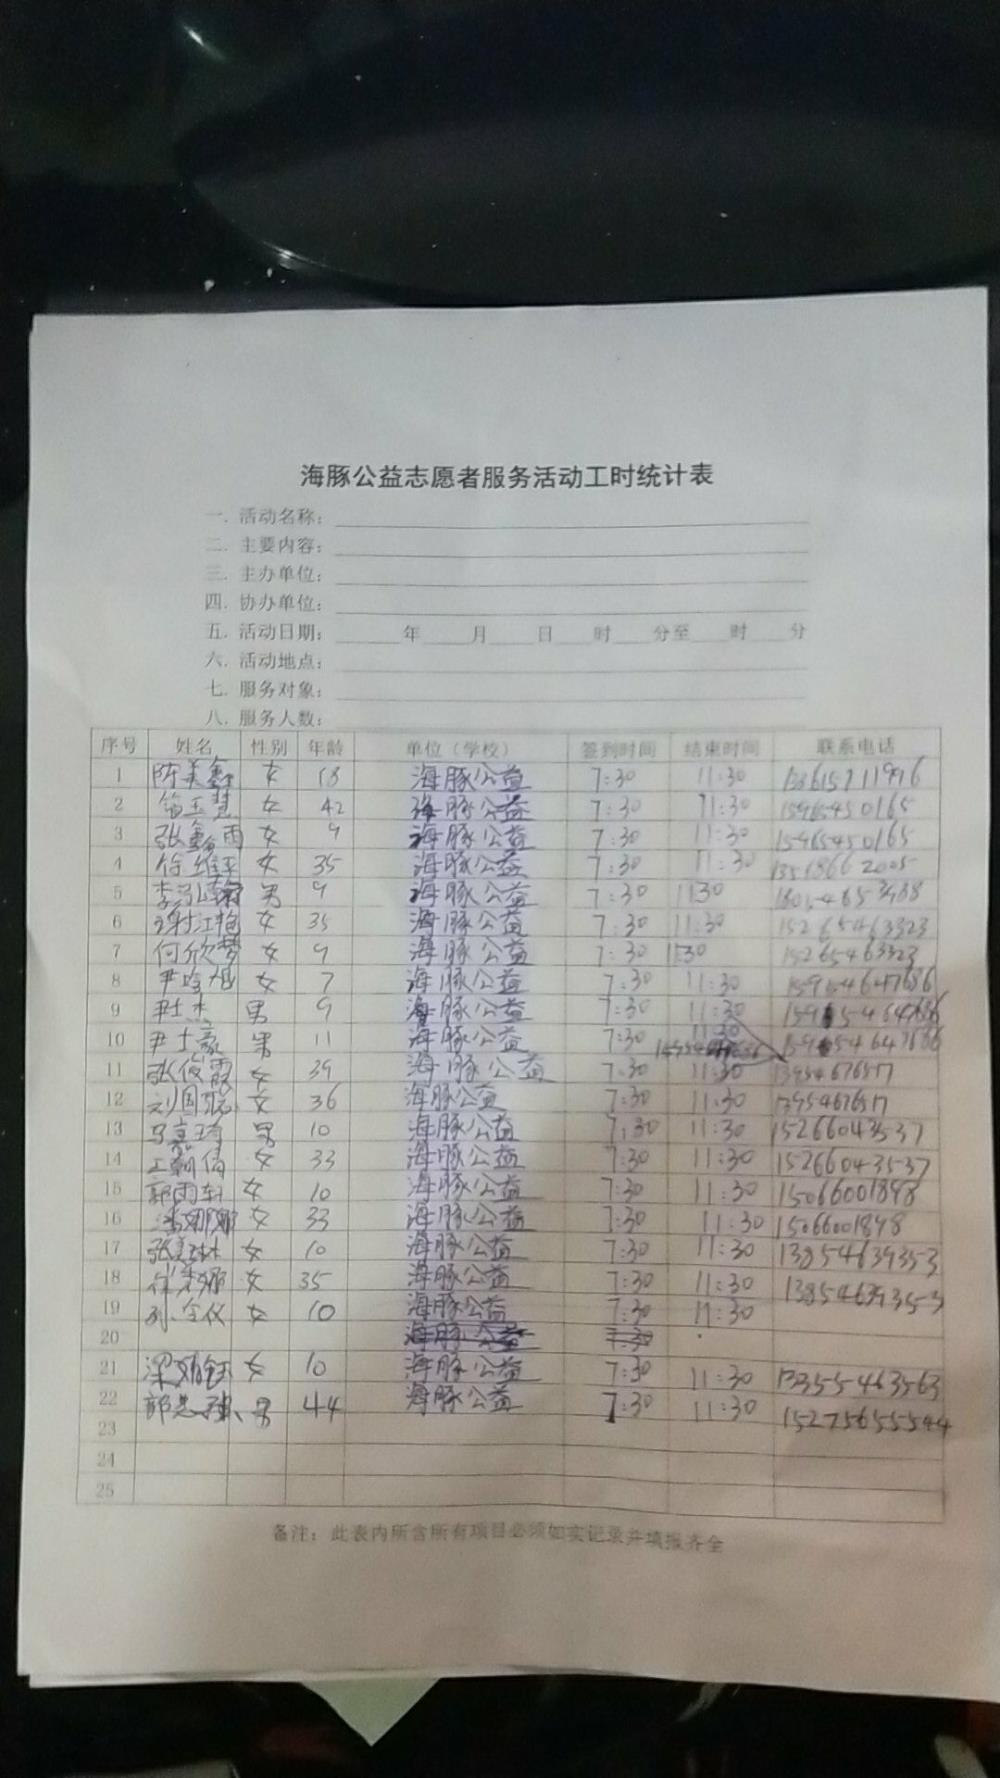 海豚公益志愿者服务活动工时统计表
一. 活动名称:
二. 主要内容:
三. 主办单位:
四. 协办单位:
五. 活动日期: 年 月 日 时 分至 时 分
六. 活动地点:
七. 服务对象:
八. 服务人数:
序号 姓名 性别 年龄 单位（学校） 签到时间 结束时间 联系电话
1 陈美鑫 女 13 海豚公益 7:30 11:30
2 女 42 海豚公益 7:30 11:30 15965450165
3 张鑫雨 女 9 海豚公益 7:30 11:30 15965450165
4 徐维平 女 35 海豚公益 7:30 11:30 13518662005
5 男 9 海豚公益 7:30 11:30
6 谢江艳 女 35 海豚公益 7:30 11:30 15265463323
7 何欣梦 女 9 海豚公益 7:30 11:30 15265463323
8 女 7 海豚公益 7:30 11:30 15954647686
9 尹士杰 男 9 海豚公益 7:30 11:30 15954647686
10 尹士豪 男 11 海豚公益 7:30 11:30 15954647686
11 张俊霞 女 39 海豚公益 7:30 11:30 13954676517
12 刘国聪 女 36 海豚公益 7:30 11:30 13954676517
13 马嘉琦 男 10 海豚公益 7:30 11:30 15266043537
14 王新倩 女 33 海豚公益 7:30 11:30 15266043537
15 郭雨轩 女 10 海豚公益 7:30 11:30 15066001898
16 女 33 海豚公益 7:30 11:30 15066001898
17 女 10 海豚公益 7:30 11:30 13854639353
18 女 35 海豚公益 7:30 11:30 13854639353
19 孙令仪 女 10 海豚公益 7:30 11:30
20 海豚公益 7:30
21 梁 钰 女 10 海豚公益 7:30 11:30 13355463563
22 郭忠 男 44 海豚公益 7:30 11:30 15275655544
23
24
25
备注：此表内所含所有项目必须如实记录并填报齐全